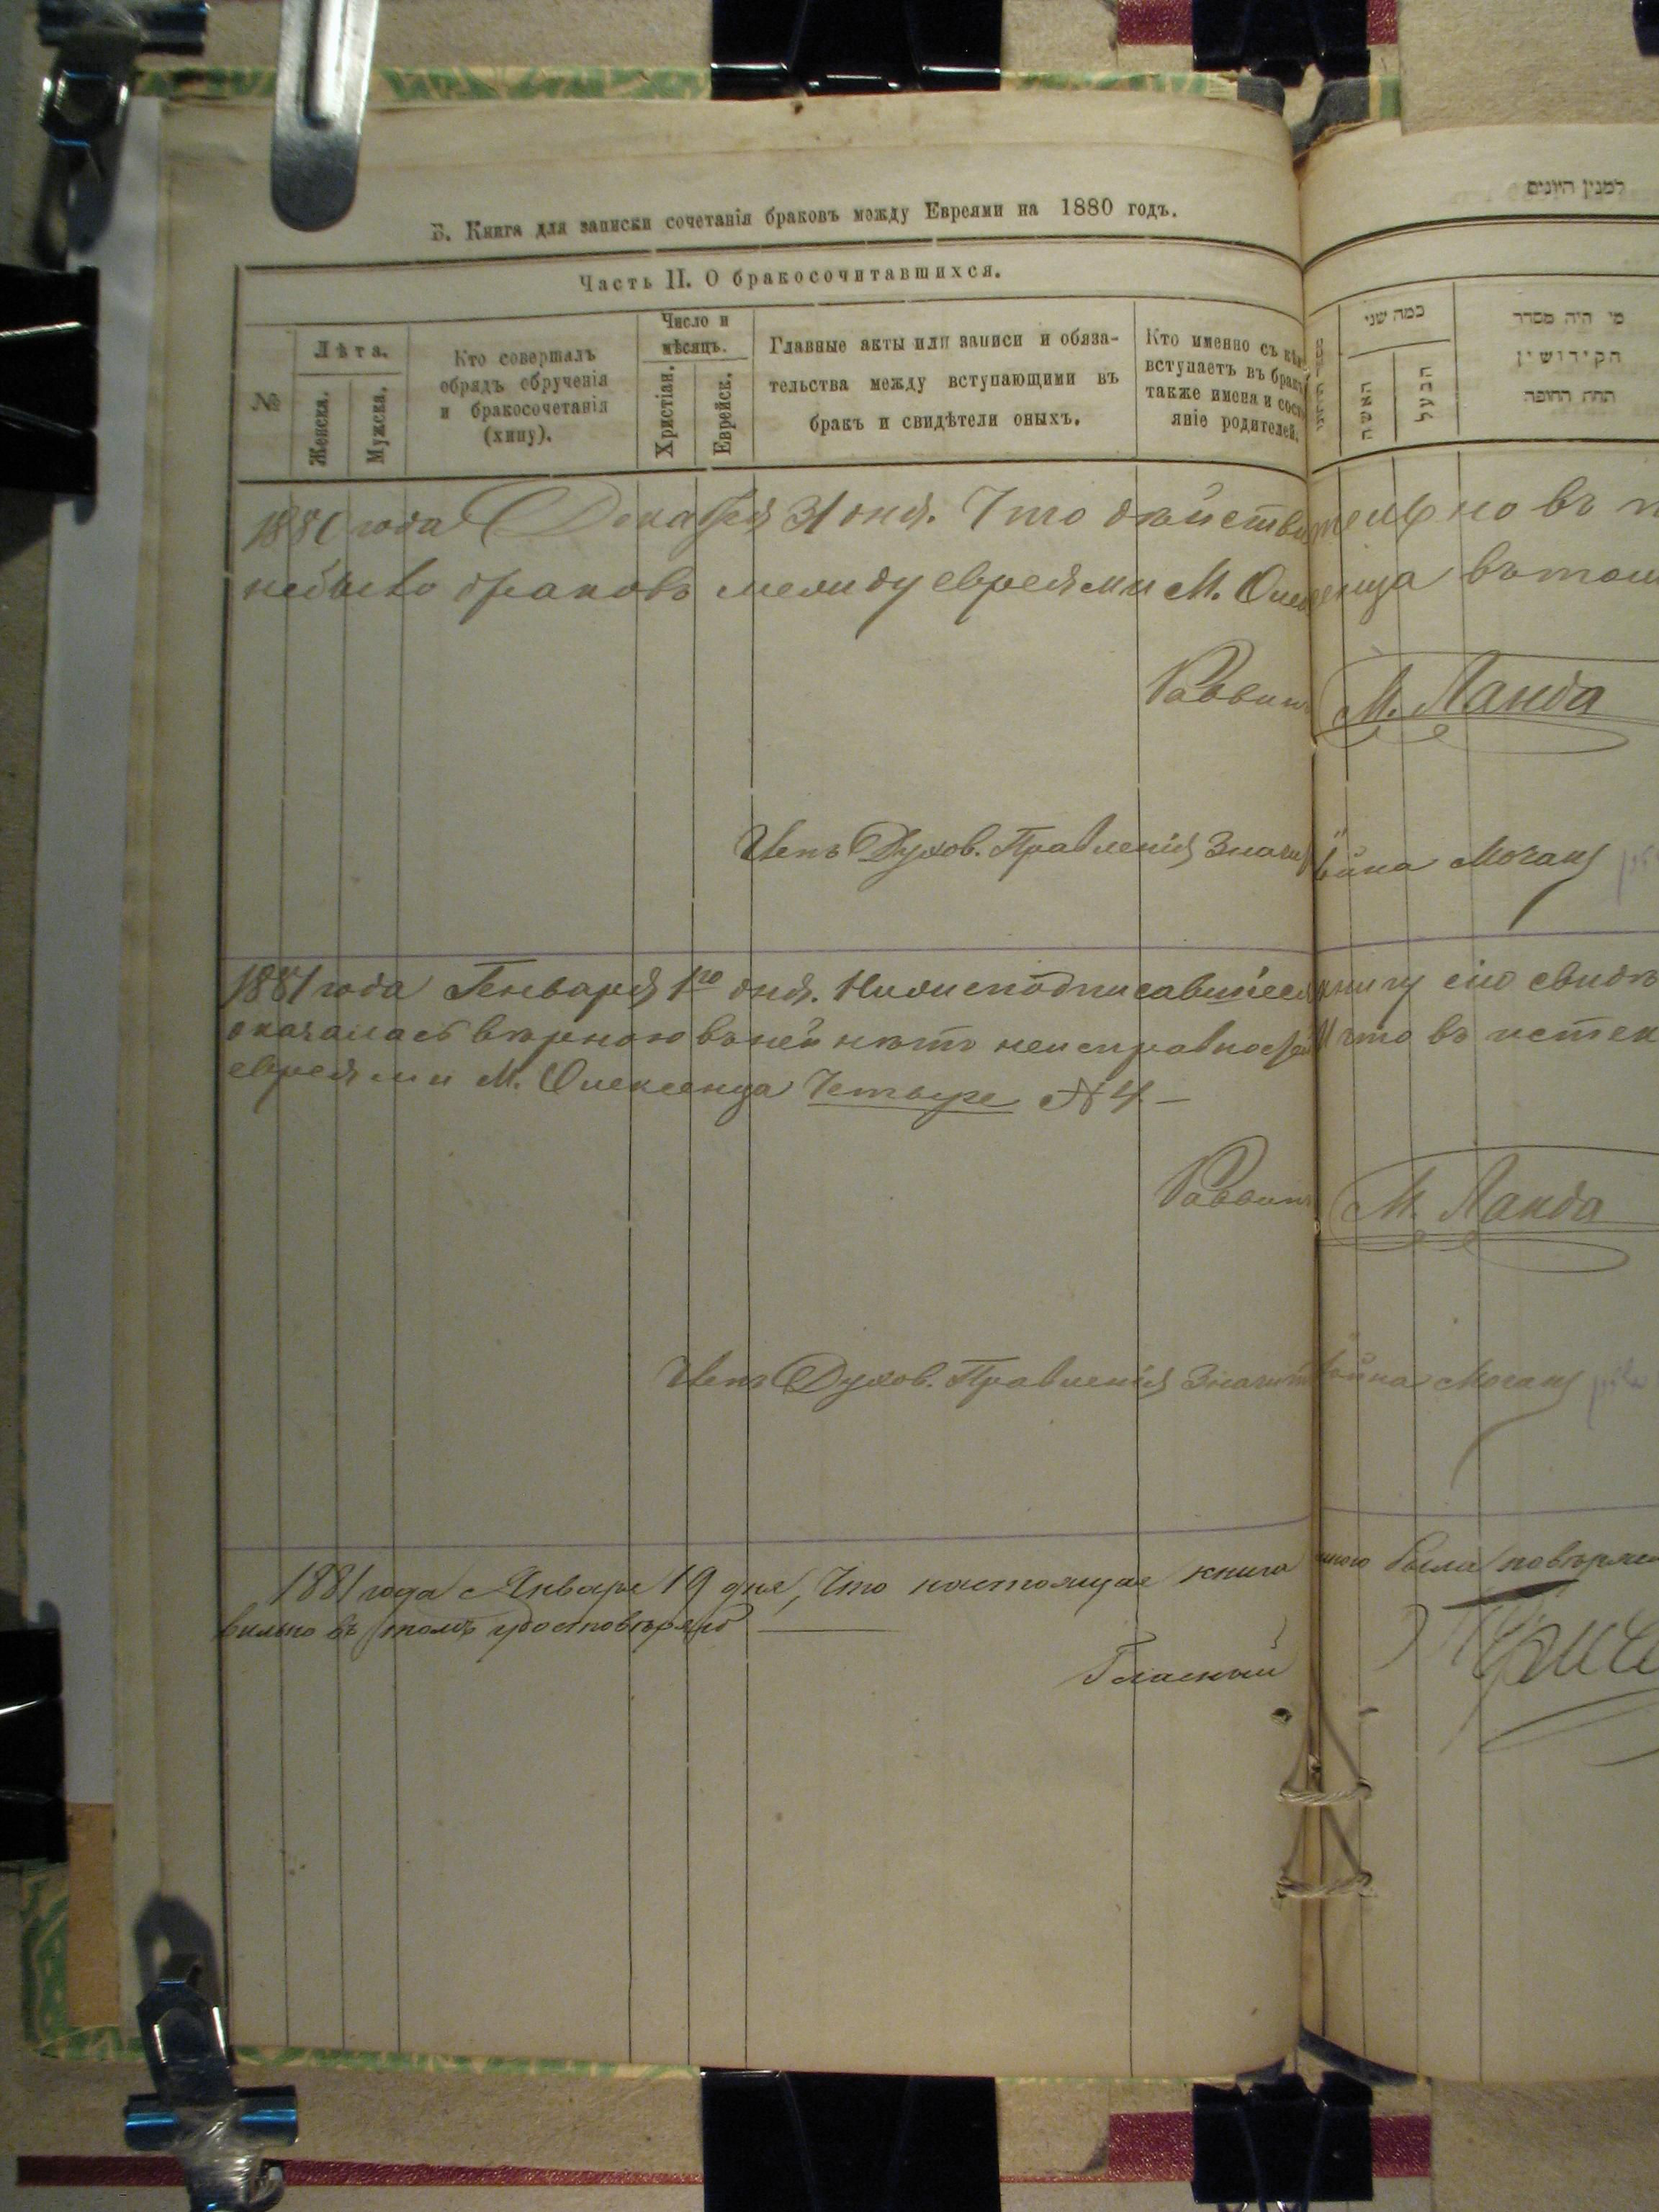 Б. Книга для записки сочетанія браковъ между Евреями на 1880 годъ.
Часть II. О бракосочитавшихся.
№
Лѣта.
Женска.
Мужска.
Кто совершалъ
обрядъ обрученія
и бракосочетанія
(хипу).
Число и
мѣсяцъ.
Христіан.
Еврейск.
Главные акты или записи и обяза-
тельства между вступающими въ
бракъ и свидѣтели оныхъ.
Кто именно съ кѣм
вступаетъ въ бракъ
также имена и сост
яніе родителей.
למנין היונים
כמה שני
האשה
הבעל
מי היה מסדר
הקידושין
תחת החופה
1880 года Декабря 31 дня. Что дѣйствительно въ
небыло браковъ между евреями М. Олексенца въ том
Раввинъ М. Ланда
Членъ Духов. Правленія
1881 года Генваря 1го дня. Нижеподписавшіеся книгу сію свидѣ
оказалась вѣрною въ ней нѣтъ неисправностей что въ истек
евреями М. Олексенца Четыре № 4 —
Раввинъ М. Ланда
Членъ Духов. Правленія
1881 года Января 19 дня, Что настоящая книга мною была повѣрена
вильно въ томъ удостовѣряю
Гласный